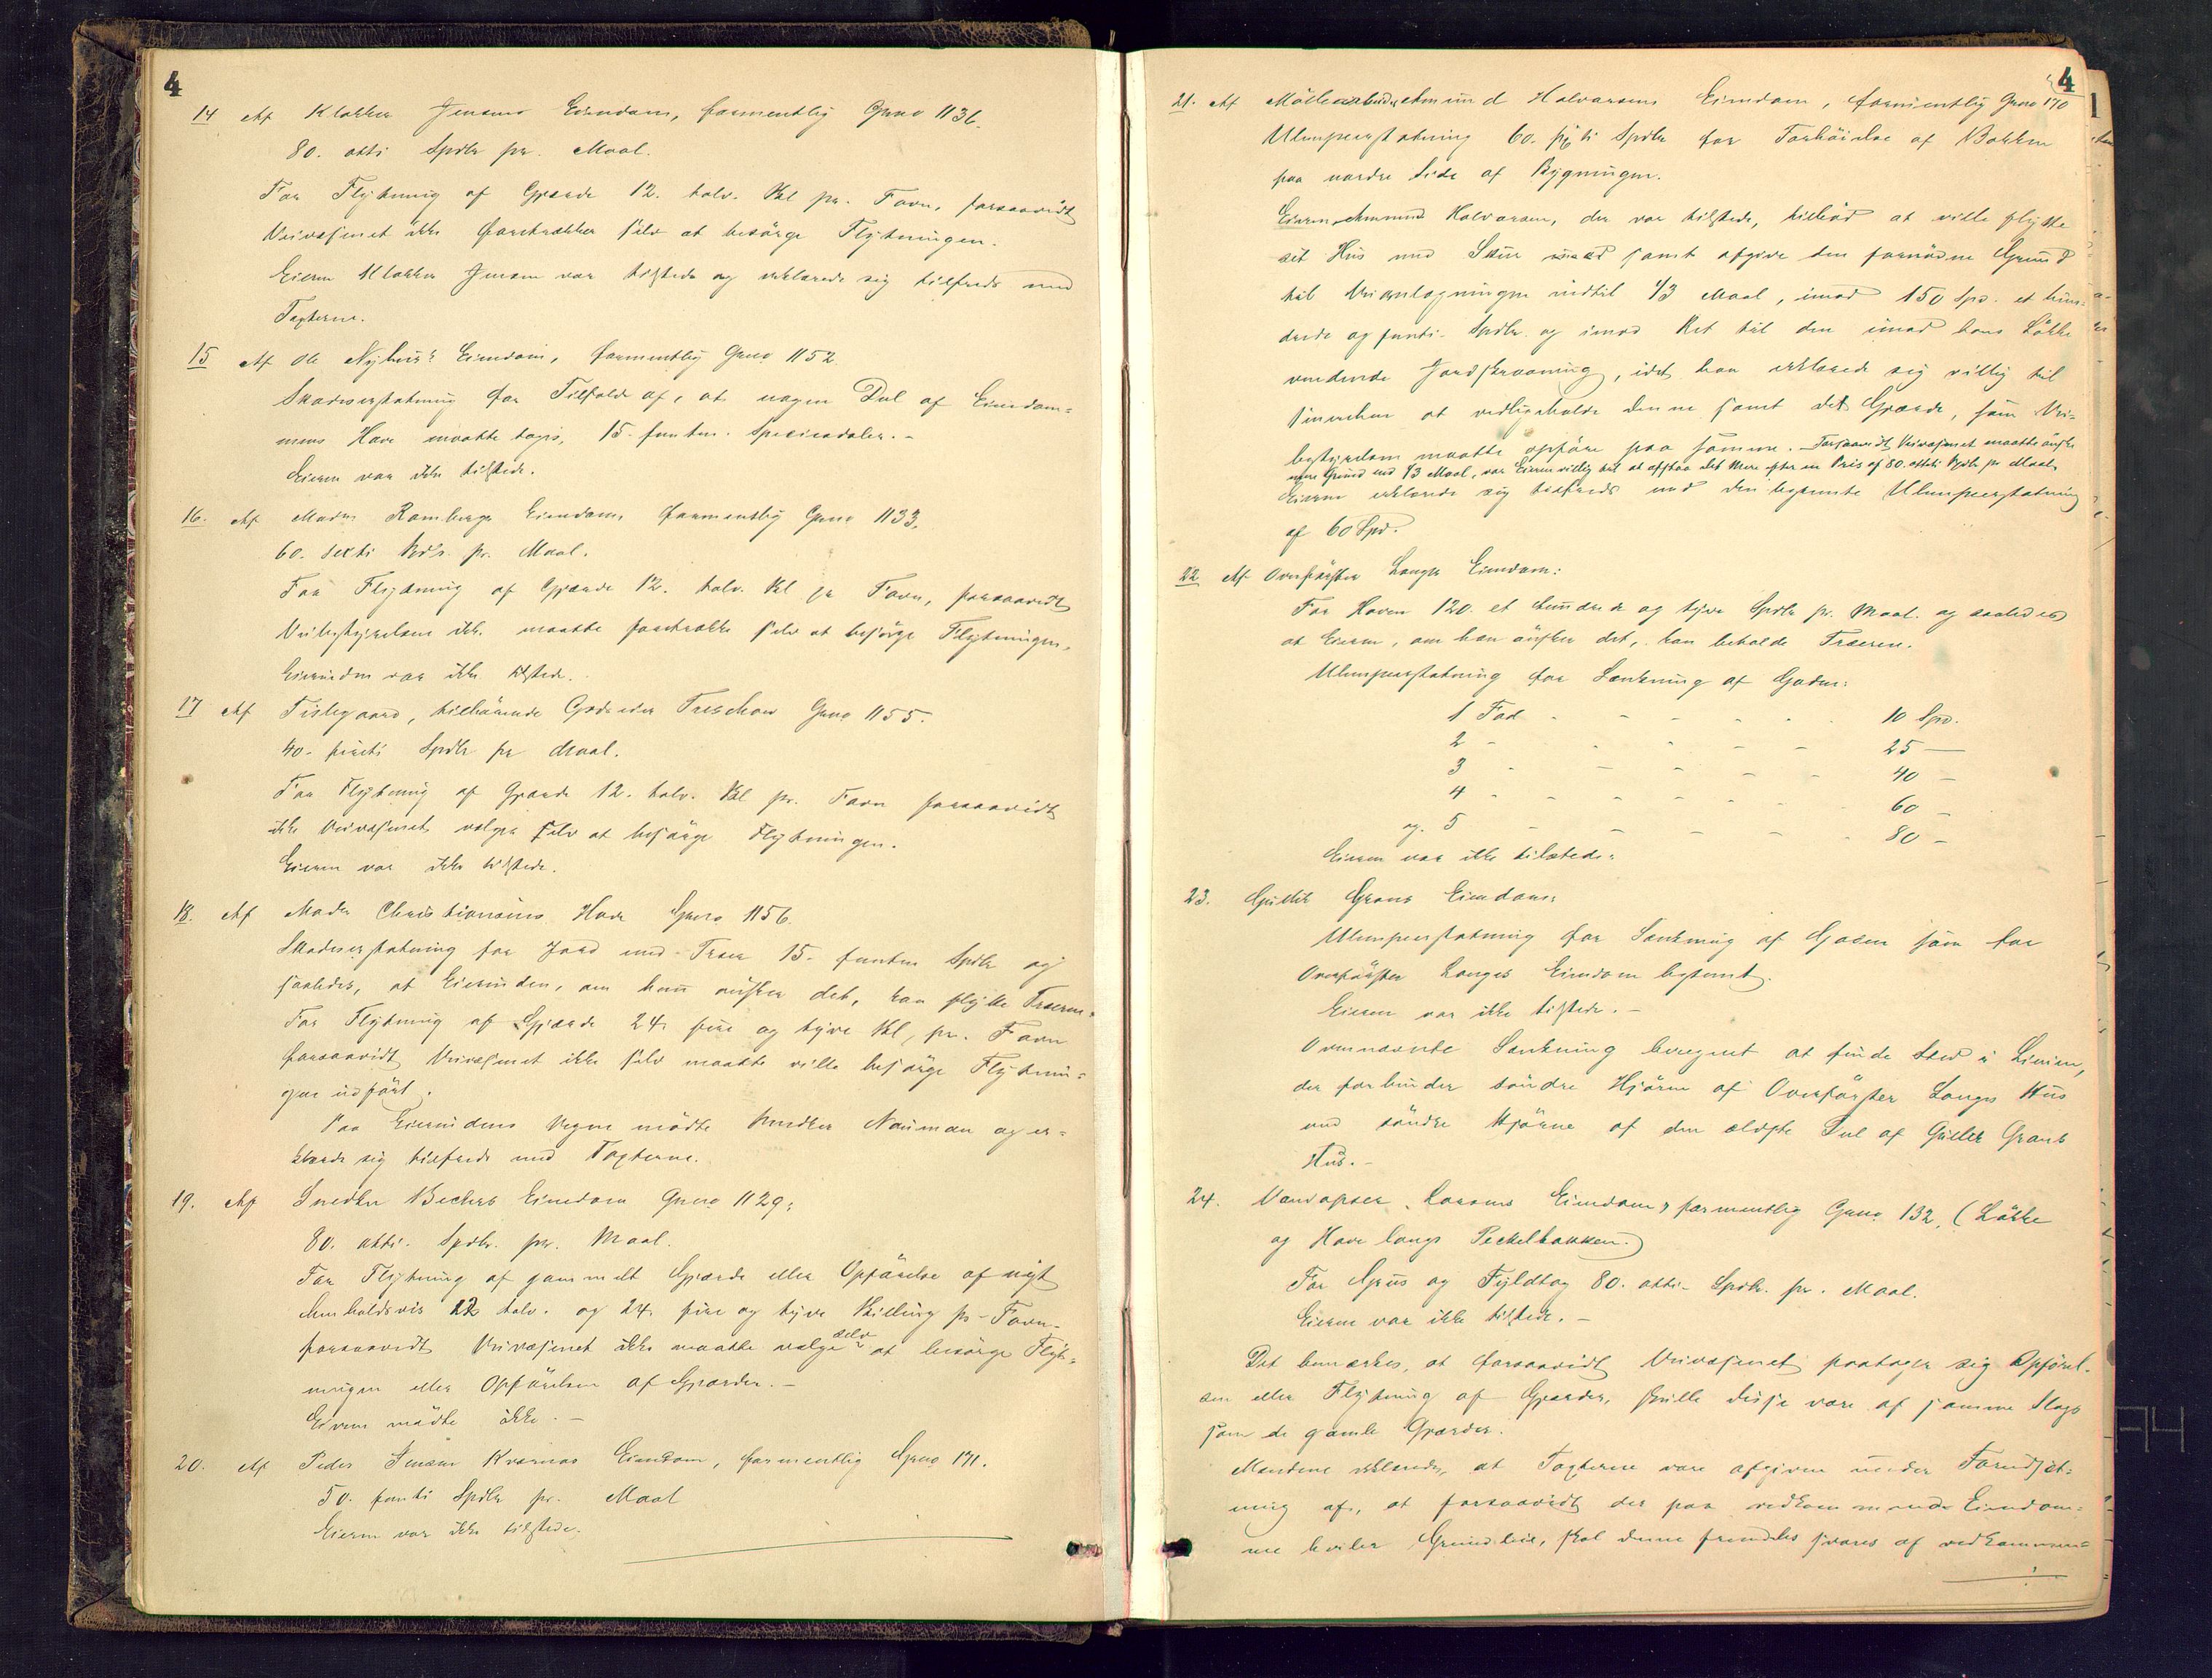 4
14 Af Klokker Jensens Eiendom, formentlig Gnno 1136.
80. otti Spdlr pr. Maal.
For Flytning af Gjærde 12. tolv. Skl pr. Favn, forsaavidt
Veivæsenet ikke foretrækker selv at besörge Flytningen.
Eieren Klokker Jensen var tilstede og erklærede sig tilfreds med
Taxterne.
15 Af Ole Nyhuus Eiendom, formentlig Gnno 1152
Skadeserstatning for Tilfælde af, at nogen Deel af Eiendom-
mens Have maatte tages, 15. femten. Speciesdaler. -
Eieren var ikke tilstede.
16. Af Madm Rambergs Eiendom, formentlig Gnno 1133,
60. sexti Spdlr. pr. Maal.
For Flytning af Gjærde 12. tolv. Skl pr Favn, forsaavidt
Veibestyrelsen ikke maatte foretrække selv at besörge Flytningen.
Eierinden var ikke tilstede.
17 Af Fislegaard, tilhörende Godseier Treschow Gnno 1155.
40. fireti Spdlr pr Maal.
For Flytning af Gjærde 12. tolv. Skl pr. Favn forsaavidt
ikke Veivæsenet vælger selv at besörge Flytningen.
Eieren var ikke tilstede.
18. Af Madm Christiansens Have Gnno 1156.
Skadeserstatning for Jord med Træer 15. femten Spdlr og
saaledes, at Eierinden, om hun önsker det, kan flytte Træerne.
For Flytning af Gjærde 24. fire og tyve Skl, pr. Favn
forsaavidt Veivæsenet ikke selv maatte ville besörge Flytnin-
gen udfört.
Paa Eierindens Vegne mödte Snedker Nauman og er-
klærede sig tilfreds med Taxterne.
19. Af Snedker Beckers Eiendom Gnno 1129;
80. otti. Spdlr. pr. Maal.
For Flytning af gammelt Gjærde eller Opförelse af nyt
henholdsvis 12 tolv. og 24. fire og tyve Skilling pr. Favn
forsaavidt Veivæsenet ikke maatte vælge selv at besörge Flyt-
ningen eller Opförelsen af Gjærder. -
Eieren mödte ikke. -
20. Af Peder Jensen Kværnes Eiendom, formentlig Gnno 171.
50. femti Spdlr pr. Maal
Eieren var ikke tilstede.
4
21. Af Möllearbeider Amund Halvorsens Eiendom, formentlig Gnno 170
Ulempeerstatning 60. sexti Spdlr for Forhöielse af Bakken
paa nordre Side af Bygningen.
Eieren Amund Halvorsen, der var tilstede, tilböd at ville flytte
sit Hus med Skuur samt afgive den fornödne Grund
til Veianlægningen indtil 1/3 Maal, imod 150 Spd. et hun-
drede og femti. Spdlr. og imod Ret til den imod hans Lökke
vendende Jordskraaning, idet han erklærede sig villig til
at vedligeholde denne samt det Gjærde, som Vei-
bestyrelsen maatte opföre paa samme. - Forsaavidt Veivæsenet maatte önske
mere Grund end 1/3 Maal, var Eieren villig til at afstaa det Mere efter en Pris af 80. otteti Spdlr pr Maal.
Eieren erklærede sig tilfreds med den bestemte Ulempeerstatning
af 60 Spd.
22 Af Overförster Langes Eiendom:
For Haven 120. et hundrede og tyve Spdlr pr. Maal. og saaledes
at Eieren, om han önsker det, kan beholde Træerne.
Ulempeerstatning for Sænkning af Gaden:
1 Fod - - - - - 10 Spd.
2 - - - - - 25 -
3 - - - - - 40 -
4 - - - - - 60 -
og. 5 - - - - - 80 -
Eieren var ikke tilstede.
23. Gullik Grans Eiendom:
Ulempeerstatning for Sænkning af Gaden som for
Overförster Langes Eiendom bestemt.
Eieren var ikke tilstede. -
Ovennævnte Sænkning beregnet at finde Sted i Linien,
der forbinder söndre Hjörne af Overförster Langes Hus
med söndre Hjörne af den ældste Del af Gullik Grans
Hus. -
24. Larsens Eiendom, formentlig Gnno 132, (Lökke
og Have langs Peckelbakken.)
For Grus og Fyldtag 80. otti- Spdlr. pr. Maal.
Eieren var ikke tilstede. -
Det bemærkes, at forsaavidt Veivæsenet paatager sig Opförel-
sen eller Flytning af Gjærder, skulle disse være af samme Slags
som de gamle Gjærder.
Mændene erklærede, at Taxterne vare afgivne under Forudsæt-
ning af, at forsaavidt der paa vedkommende Eiendom-
me hviler Grundleie, skal denne fremdeles svares af vedkommen-